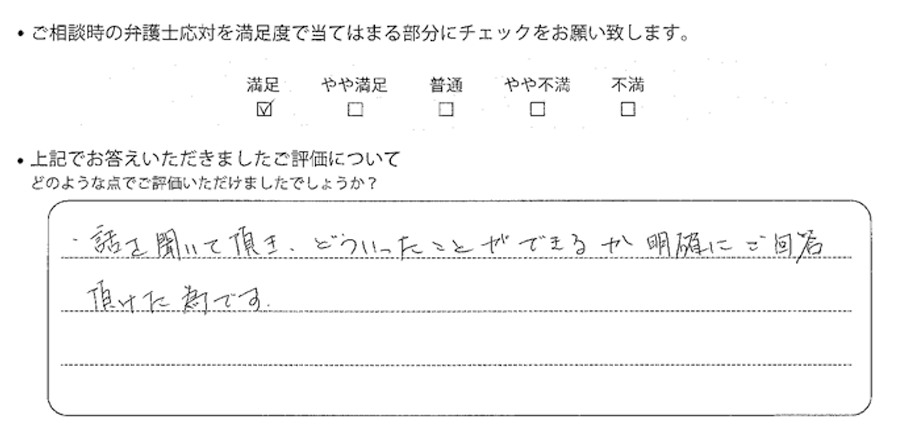 • ご相談時の弁護士応対を満足度で当てはまる部分にチェックをお願い致します。
満足 やや満足 普通 やや不満 不満
☑ ☐ ☐ ☐ ☐
• 上記でお答えいただきましたご評価について
どのような点でご評価いただけましたでしょうか？
・話を聞いて頂き、どういったことができるか明確にご回答
頂けた為です。